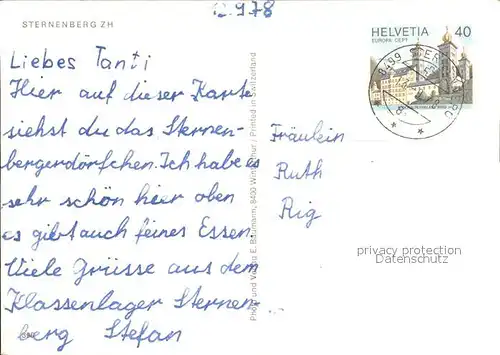 12.9.78
STERNENBERG ZH
HELVETIA 40
EUROPA CEPT
8499 STERNENBERG
Liebes Tanti
Hier auf dieser Karte
siehst du das Sternen-
bergerdörfchen. Ich habe es
sehr schön hier oben
es gibt auch feines Essen.
Viele Grüsse aus dem
Klassenlager Sternen-
berg Stefan
Photo und Verlag E. Baumann, 8400 Winterthur / Printed in Switzerland
Fräulein
Ruth
Rig
privacy protection
Datenschutz